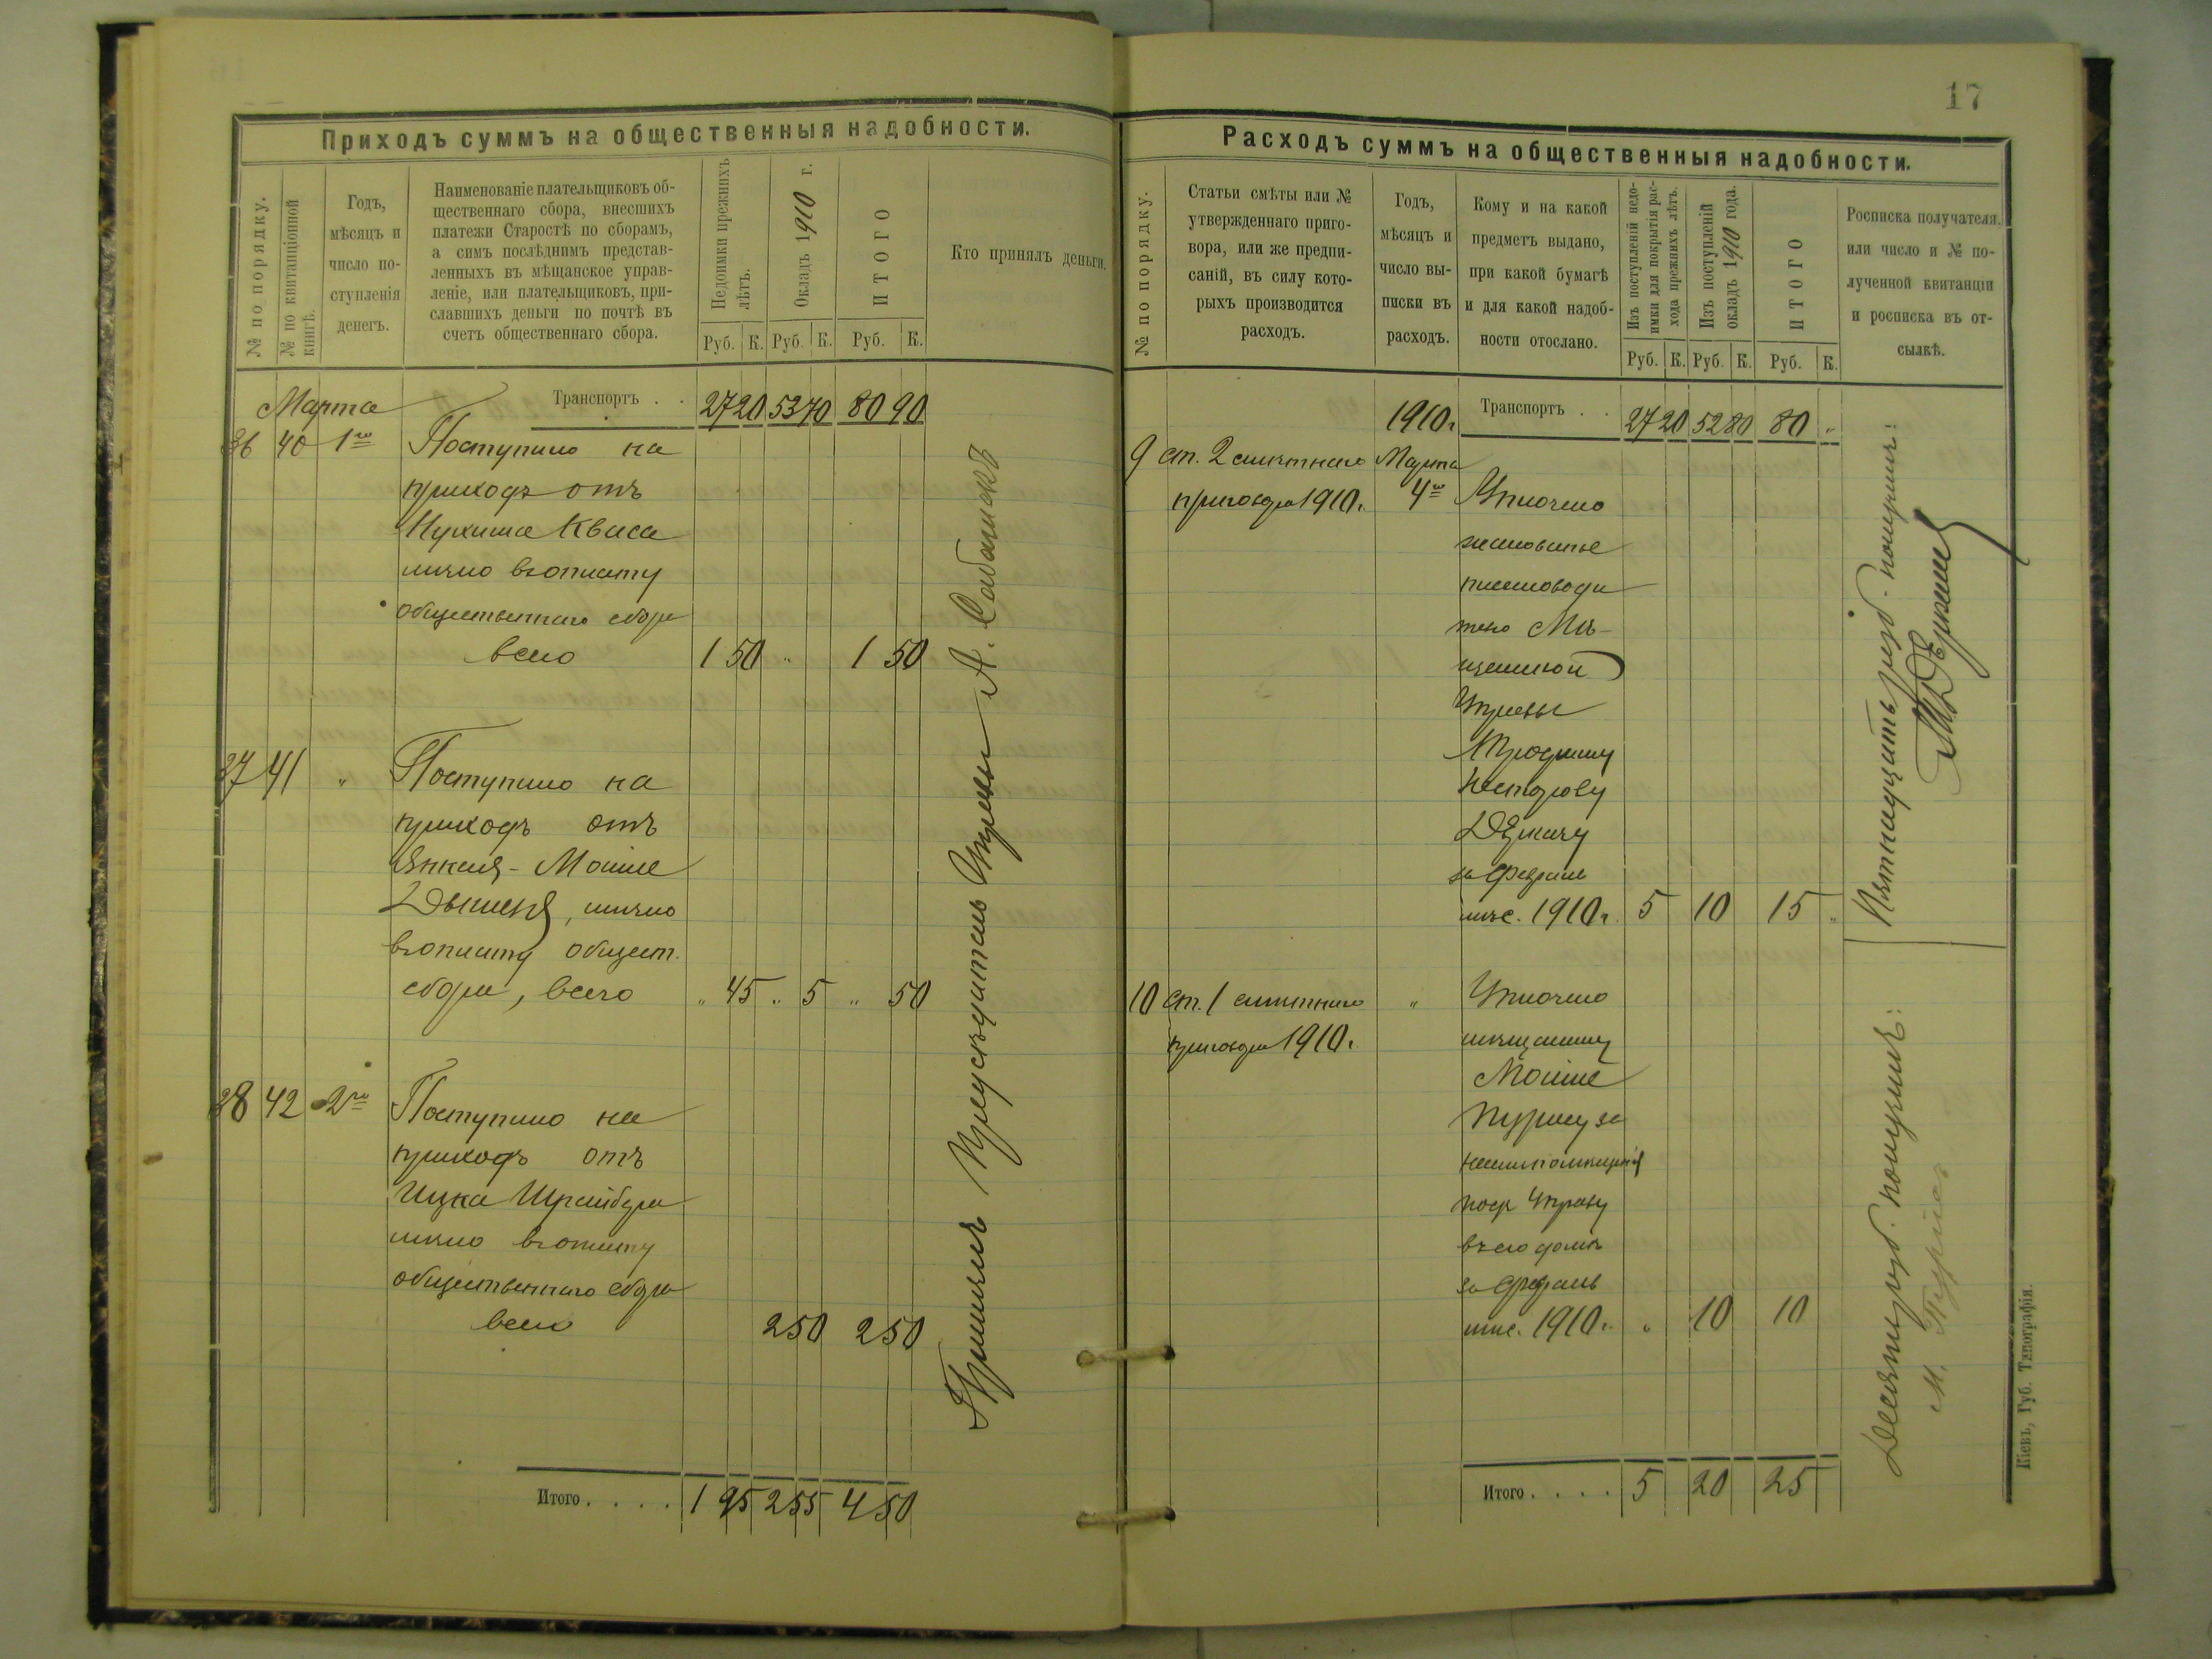 17
Приходъ суммъ на общественныя надобности.
№ по порядку.
№ по квитанціонной
книгѣ.
Годъ,
мѣсяцъ и
число по-
ступленія
денегъ.
Наименованіе плательщиковъ об-
щественнаго сбора, внесшихъ
платежи Старостѣ по сборамъ,
а симъ послѣднимъ представ-
ленныхъ въ мѣщанское управ-
леніе, или плательщиковъ, при-
славшихъ деньги по почтѣ въ
счетъ общественнаго сбора.
Недоимки прежнихъ
лѣтъ.
Окладъ 1910 г.
ИТОГО
Кто принялъ деньги.
Руб. К. Руб. К. Руб. К.
Марта Транспортъ . . 27 20 53 70 80 90
36 40 1го Поступило на
приходъ отъ
Кваса
лично въ оплату
общественнаго сбора
всего 1 50 „ 1 50
37 41 „ Поступило на
приходъ отъ
Янкеля-Мошке
лично
въ оплату общест.
сбора, всего „ 45 „ 5 „ 50
38 42 2го Поступило на
приходъ отъ
Ицка Шрайбера
лично въ оплату
общественнаго сбора
всего 2 50 2 50
Итого . . . . 1 95 2 55 4 50
Принялъ Предсѣдатель Управы А.
Расходъ суммъ на общественныя надобности.
№ по порядку.
Статьи смѣты или №
утвержденнаго приго-
вора, или же предпи-
саній, въ силу кото-
рыхъ производится
расходъ.
Годъ,
мѣсяцъ и
число вы-
писки въ
расходъ.
Кому и на какой
предметъ выдано,
при какой бумагѣ
и для какой надоб-
ности отослано.
Изъ поступленій недо-
имки для покрытія рас-
хода прежнихъ лѣтъ.
Изъ поступленій
окладъ 1910 года.
ИТОГО
Росписка получателя.
или число и № по-
лученной квитанціи
и росписка въ от-
сылкѣ.
Руб. К. Руб. К. Руб. К.
1910г. Транспортъ . . 27 20 52 80 80 „
9 ст. 2 смѣтнаго Марта
приговора 1910г. 4го Уплочено
жалованье
письмоводи
телю Мѣ-
щанской
Управы
Трофиму
Несторову
Деркачу
за Февраль
мѣс. 1910г. 5 10 15 „
10 ст. 1 смѣтнаго „ Уплочено
приговора 1910г.
мѣщанину
Мошке
Пурису за
наемъ помѣщенія
подъ Управу
въ его домѣ
за Февраль
мѣс. 1910г. „ 10 10
Итого . . . . 5 20 25
Пятнадцать руб. получилъ:
Десять руб. получилъ:
М. Пурисъ
Кіевъ, Губ. Типографія.